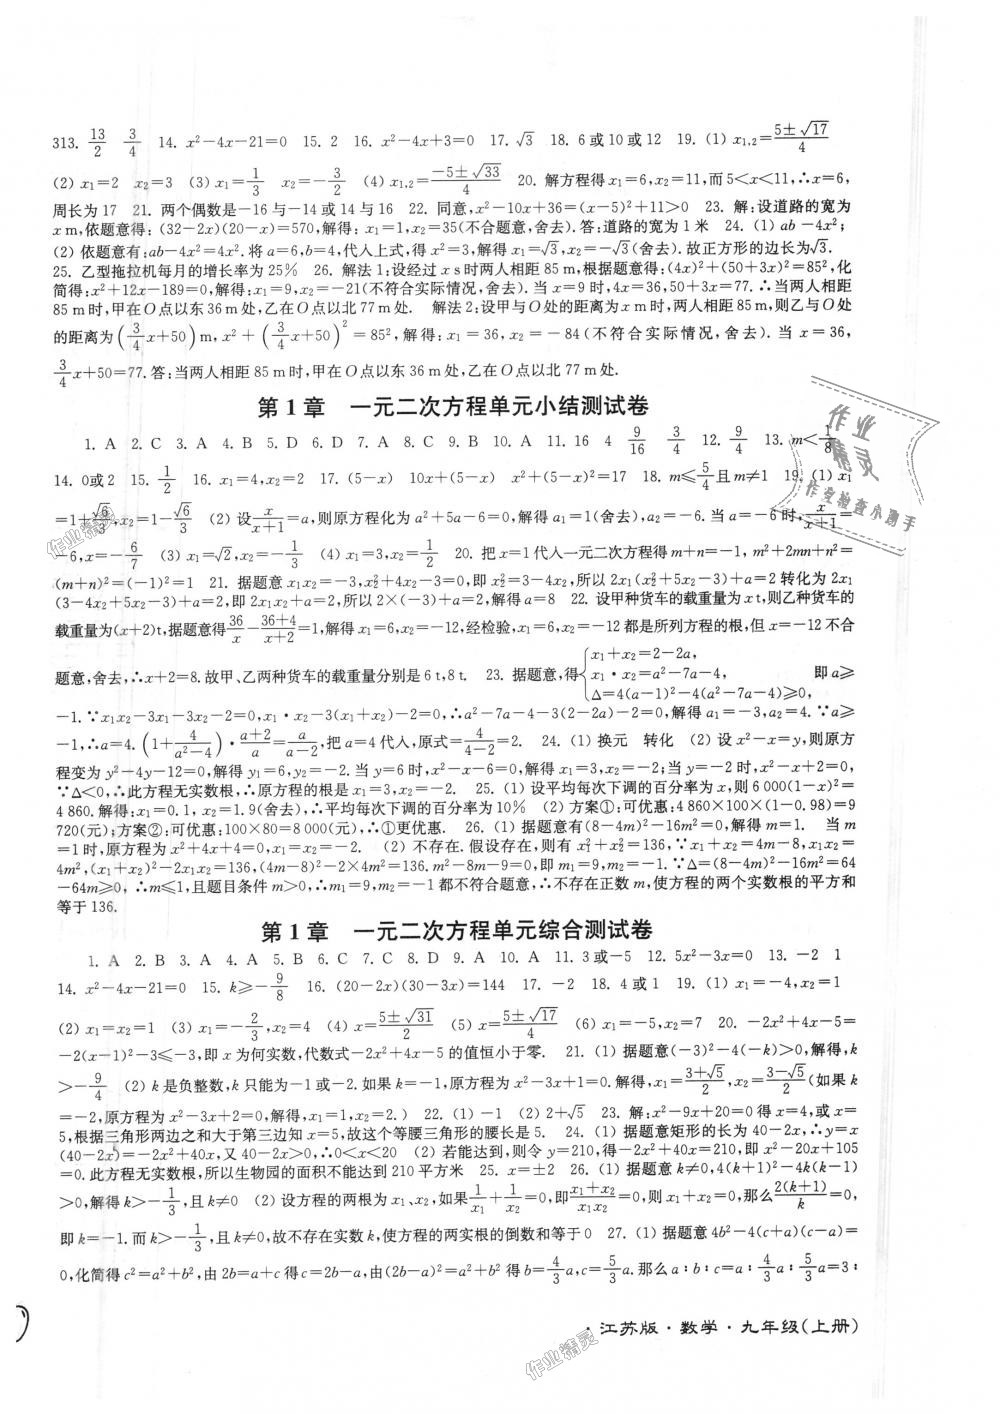 313. 13/2　3/4　14. x²－4x－21＝0　15. 2　16. x²－4x＋3＝0　17. √3　18. 6或10或12　19. (1) x₁,₂＝(5±√17)/4
(2) x₁＝2　x₂＝3　(3) x₁＝1/3　x₂＝－3/2　(4) x₁,₂＝(－5±√33)/4　20. 解方程得x₁＝6,x₂＝11,而5<x<11,∴x＝6,
周长为17　21. 两个偶数是－16与－14或14与16　22. 同意,x²－10x＋36＝(x－5)²＋11>0　23. 解:设道路的宽为
x m,依题意得: (32－2x)(20－x)＝570,解得: x₁＝1,x₂＝35(不合题意,舍去).答:道路的宽为1米　24. (1) ab－4x²;
(2) 依题意有:ab－4x²＝4x².将a＝6,b＝4,代人上式,得x²＝3,解得x₁＝√3,x₂＝－√3(舍去).故正方形的边长为√3.
25. 乙型拖拉机每月的增长率为25%　26. 解法1:设经过x s时两人相距85 m,根据题意得:(4x)²＋(50＋3x)²＝85²,化
简得:x²＋12x－189＝0,解得:x₁＝9,x₂＝－21(不符合实际情况,舍去).当x＝9时,4x＝36,50＋3x＝77.∴当两人相距
85 m时,甲在O点以东36 m处,乙在O点以北77 m处.　解法2:设甲与O处的距离为x m时,两人相距85 m,则乙与O处
的距离为(3/4x＋50)m,x²＋(3/4x＋50)²＝85²,解得: x₁＝36, x₂＝－84(不符合实际情况,舍去).当x＝36,
3/4x＋50＝77.答:当两人相距85 m时,甲在O点以东36 m处,乙在O点以北77 m处.
第1章　一元二次方程单元小结测试卷
1. A　2. C　3. A　4. B　5. D　6. D　7. A　8. C　9. B　10. A　11. 16　4　9/16　3/4　12. 9/4　13. m<1/8
14. 0或2　15. 1/2　16. x₁＝4,x₂＝2　17. x(5－x)　10x＋(5－x)　x²＋(5－x)²＝17　18. m≤5/4且m≠1　19. (1) x₁
＝1＋√6/3,x₂＝1－√6/3　(2) 设x/(x＋1)＝a,则原方程化为a²＋5a－6＝0,解得a₁＝1(舍去),a₂＝－6.当a＝－6时,x/(x＋1)＝
－6,x＝－6/7　(3) x₁＝√2,x₂＝－1/3　(4) x₁＝3,x₂＝1/2　20. 把x＝1代人一元二次方程得m＋n＝－1, m²＋2mn＋n²＝
(m＋n)²＝(－1)²＝1　21. 据题意x₁x₂＝－3,x₂²＋4x₂－3＝0,即x₂²＝3－4x₂,所以2x₁(x₂²＋5x₂－3)＋a＝2转化为2x₁
(3－4x₂＋5x₂－3)＋a＝2,即2x₁x₂＋a＝2,所以2×(－3)＋a＝2,解得a＝8　22. 设甲种货车的载重量为x t,则乙种货车的
载重量为(x＋2)t,据题意得36/x－(36＋4)/(x＋2)＝1,解得x₁＝6,x₂＝－12,经检验,x₁＝6,x₂＝－12都是所列方程的根,但x＝－12不合
题意,舍去,∴x＋2＝8.故甲、乙两种货车的载重量分别是6 t,8 t.　23. 据题意,得{x₁＋x₂＝2－2a, x₁·x₂＝a²－7a－4, Δ＝4(a－1)²－4(a²－7a－4)≥0,　即a≥
－1.∵x₁x₂－3x₁－3x₂－2＝0,x₁·x₂－3(x₁＋x₂)－2＝0,∴a²－7a－4－3(2－2a)－2＝0,解得a₁＝－3,a₂＝4.∵a≥
－1,∴a＝4.(1＋4/(a²－4))·(a＋2)/a＝a/(a－2),把a＝4代人,原式＝4/(4－2)＝2.　24. (1) 换元　转化　(2) 设x²－x＝y,则原方
程变为y²－4y－12＝0,解得y₁＝6,y₂＝－2.当y＝6时,x²－x－6＝0,解得x₁＝3,x₂＝－2;当y＝－2时,x²－x＋2＝0,
∵Δ<0,∴此方程无实数根,∴原方程的根是x₁＝3,x₂＝－2.　25. (1) 设平均每次下调的百分率为x,则6 000(1－x)²＝
4 860.解得:x₁＝0.1, x₂＝1.9(舍去),∴平均每次下调的百分率为10%　(2) 方案①:可优惠:4 860×100×(1－0.98)＝9
720(元);方案②:可优惠:100×80＝8 000(元),∴①更优惠.　26. (1) 据题意有(8－4m)²－16m²＝0,解得m＝1.　当m
＝1时,原方程为x²＋4x＋4＝0,x₁＝x₂＝－2.　(2) 不存在.假设存在,则有x₁²＋x₂²＝136,∵x₁＋x₂＝4m－8,x₁x₂＝
4m²,(x₁＋x₂)²－2x₁x₂＝136,(4m－8)²－2×4m²＝136.m²－8m－9＝0,即m₁＝9,m₂＝－1.∵Δ＝(8－4m)²－16m²＝64
－64m≥0, ∴m≤1,且题目条件m>0,∴m₁＝9,m₂＝－1都不符合题意,∴不存在正数m,使方程的两个实数根的平方和
等于136.
第1章　一元二次方程单元综合测试卷
1. A　2. B　3. A　4. A　5. B　6. C　7. C　8. D　9. A　10. A　11. 3或－5　12. 5x²－3x＝0　13. －2　1
14. x²－4x－21＝0　15. k≥－9/8　16. (20－2x)(30－3x)＝144　17. －2　18. 4或1　19. (1) x₁＝－4,x₂＝1
(2) x₁＝x₂＝1　(3) x₁＝－2/3,x₂＝4　(4) x＝(5±√31)/2　(5) x＝(5±√17)/4　(6) x₁＝－5,x₂＝7　20. －2x²＋4x－5＝
－2(x－1)²－3≤－3,即x为何实数,代数式－2x²＋4x－5的值恒小于零.　21. (1) 据题意(－3)²－4(－k)>0,解得,k
>－9/4　(2) k是负整数,k只能为－1或－2.如果k＝－1,原方程为x²－3x＋1＝0.解得,x₁＝(3＋√5)/2,x₂＝(3－√5)/2(如果k
＝－2,原方程为x²－3x＋2＝0,解得,x₁＝1,x₂＝2.)　22. (1) －1　(2) 2＋√5　23. 解:x²－9x＋20＝0得x＝4,或x＝
5,根据三角形两边之和大于第三边知x＝5,故这个等腰三角形的腰长是5.　24. (1) 据题意矩形的长为40－2x,∴y＝x
(40－2x)＝－2x²＋40x,又40－2x>0,∴0<x<20　(2) 若能达到,则令y＝210,得－2x²＋40x＝210,即x²－20x＋105
＝0.此方程无实数根,所以生物园的面积不能达到210平方米　25. x＝±2　26. (1) 据题意k≠0,4(k＋1)²－4k(k－1)
>0,解得k>－1/3,且k≠0　(2) 设方程的两根为x₁、x₂,如果1/x₁＋1/x₂＝0,即(x₁＋x₂)/(x₁x₂)＝0,则x₁＋x₂＝0,那么2(k＋1)/k＝0,
即k＝－1.而k>－1/3,且k≠0,故不存在实数k,使方程的两实根的倒数和等于0　27. (1) 据题意4b²－4(c＋a)(c－a)＝
0,化简得c²＝a²＋b²,由2b＝a＋c得c＝2b－a,由(2b－a)²＝a²＋b²得b＝4/3a,c＝5/3a.那么a∶b∶c＝a∶4/3a∶5/3a＝3∶
·江苏版·数学·九年级(上册)
作业
精灵
作业检查小助手
作业精灵
作业精灵